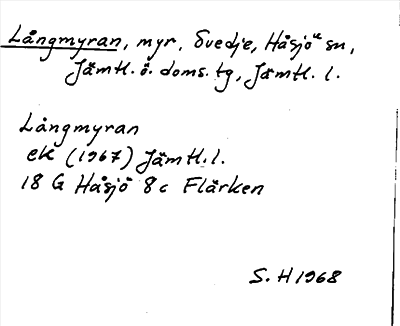 Långmyran, myr, Svedje, Håsjö sn,
Jämtl. ö. doms. tg, Jämtl. l.
Långmyran
ek (1967) Jämtl. l.
18 G Håsjö 8c Flärken
S. H 1968